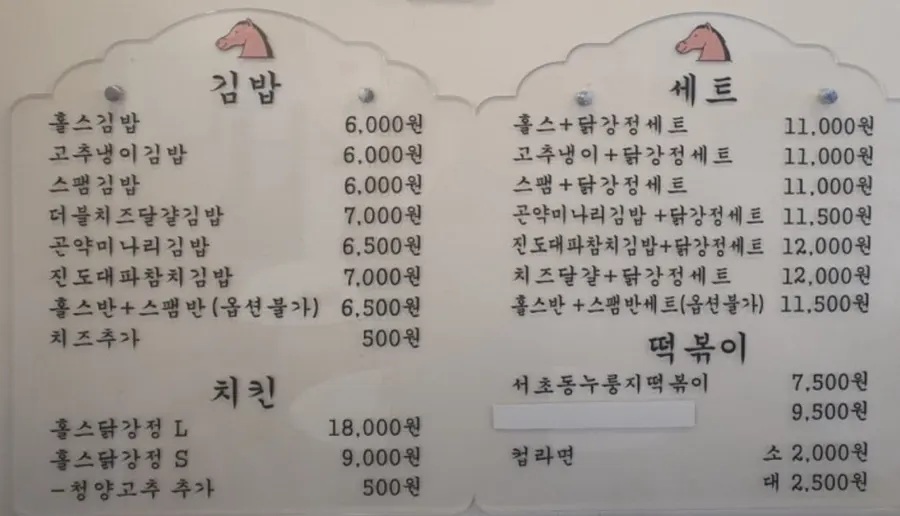 김밥
홀스김밥 6,000원
고추냉이김밥 6,000원
스팸김밥 6,000원
더블치즈달걀김밥 7,000원
곤약미나리김밥 6,500원
진도대파참치김밥 7,000원
홀스반+스팸반(옵션불가) 6,500원
치즈추가 500원
치킨
홀스닭강정 L 18,000원
홀스닭강정 S 9,000원
-청양고추 추가 500원
세트
홀스+닭강정세트 11,000원
고추냉이+닭강정세트 11,000원
스팸+닭강정세트 11,000원
곤약미나리김밥 +닭강정세트 11,500원
진도대파참치김밥+닭강정세트 12,000원
치즈달걀+닭강정세트 12,000원
홀스반 +스팸반세트(옵션불가) 11,500원
떡볶이
서초동누룽지떡볶이 7,500원
9,500원
컵라면 소 2,000원
대 2,500원